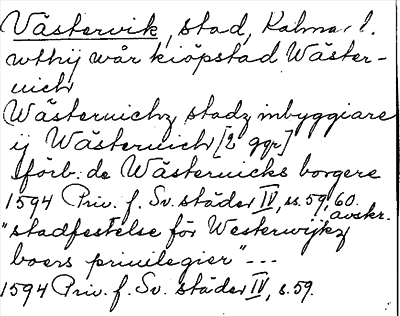 Västervik, stad, Kalmar l.
wthij wår kiöpstad Wäster-
uich
Wästeruichz stadz inbyggiare
ij Wästeruich [2 ggr]
förb. de Wästeruicks borgere
1594 Priv. f. Sv. städer IV, ss. 59, 60.
avskr.
"stadfestelse för Westerwijkz
boers priuilegier" ---
1594 Priv. f. Sv. städer IV, s. 59.